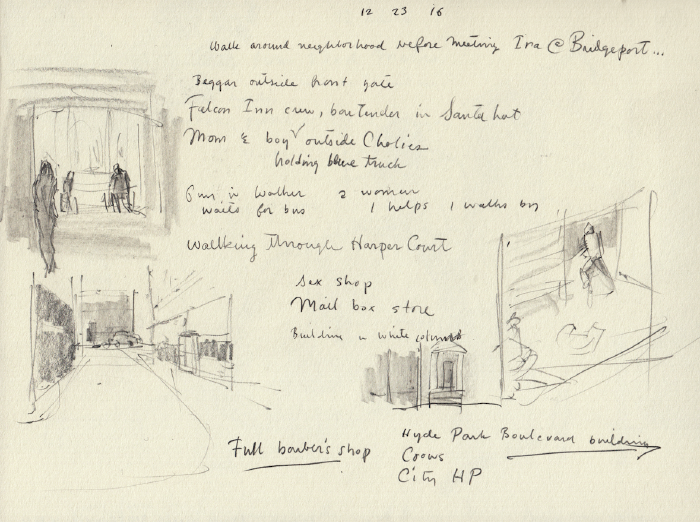 12 23 16
Walk around neighborhood before meeting Ira @ Bridgeport...
Beggar outside front gate
Falcon Inn crew, bartender in Santa hat
Mom & boy outside Cholies
holding blue truck
in walker 2 women
waits for bus 1 helps 1 walks by
Walking through Harper Court
Sex shop
Mail box store
Building w white columns
Full barber's shop
Hyde Park Boulevard building
Crows
City HP